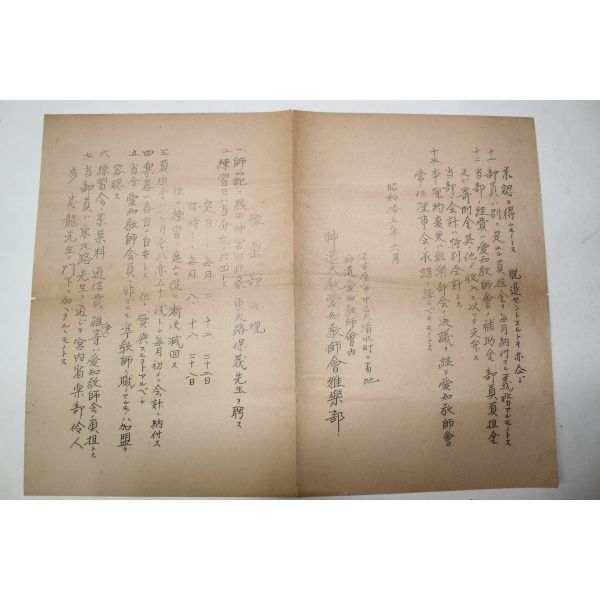 承認ヲ得ルモノトス 脱退セントスルトキ亦仝ジ
十一 部員ハ別ニ定ムル員担金ヲ毎月納付スル義務アルモノトス
十二 当部ノ経費ハ愛知教師會ノ補助金 部員員担金
又ハ寄附金 其ノ他ノ收入ヲ以ッテ支弁ス
当部ノ会計ハ特別会計トス
十三 本規約変更ハ雅楽部会ノ決議ヲ経テ愛知教師會
常任理事会ノ承認ヲ経ルベキモノトス
昭和拾五年六月
名古屋市中区大清水町二番地
神道愛知教師會内
神道大教愛知教師會雅樂部
雅樂部内規
一、師範ニ 熱田神宮旧社家 東大路保義先生ヲ聘ス
二、練習日ハ当分ノ九左ノ四トス
定日 毎月 二、十二 二十二日
臨時 毎月 八、十八 二十八日
但シ練習ノ進ムニ從ヒ漸次減回ス
三、員担金ハ一ヶ月金貮円五十銭トシ毎月ノ初メ会計ニ納付ス
四、楽器ハ各自ノ自弁トス 但シ貸與スルコトアルベシ
五、当分愛知教師会員ニ非ザルモ準教師ノ職ニアルモノハ加盟ヲ
容認ス
六、練習会ノ茶菓料 通信費 雑費等ハ愛知教師会ノ負担トス
七、当部員ハ東大路先生ヲ通ジテ宮内省樂部伶人
多忠龍先生ノ門下ニ加ヘラルヽモノトス